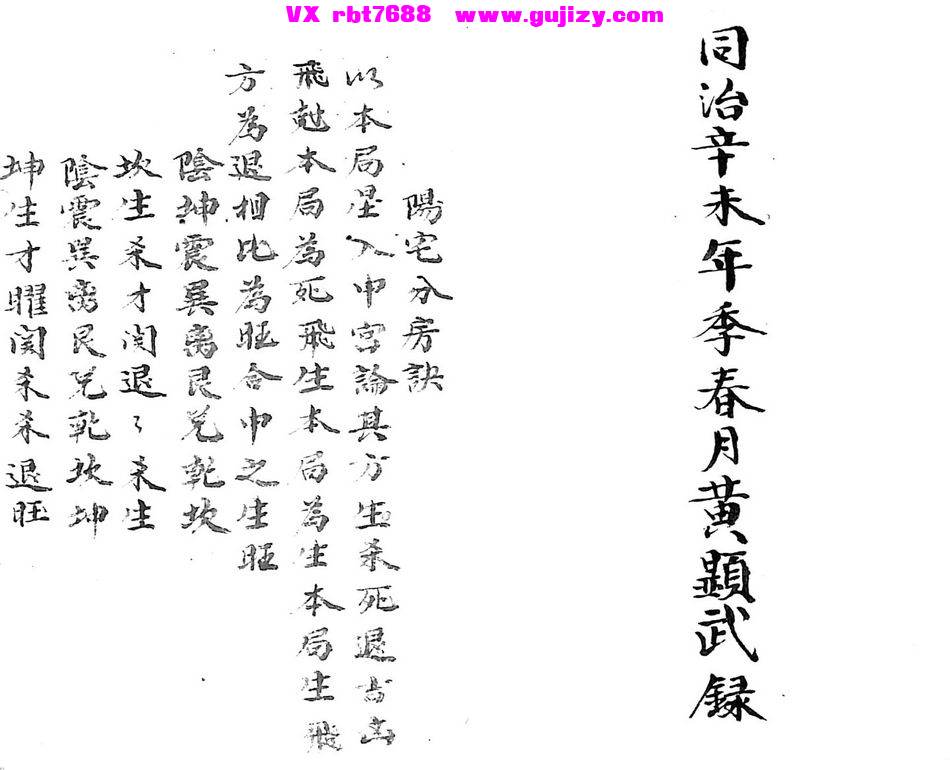 VX rbt7688 www.gujizy.com
同治辛未年季春月黄顕武録
陽宅分房訣
以本局星入中宮論其方生杀死退吉凶
飛尅本局為死飛生本局為生本局生飛
方為退相比為旺合中之生旺
陰坤震巽离艮兑乾坎
坎生杀才関退〻杀生
陰震巽离艮兑乾坎坤
坤生才曜関杀杀退旺